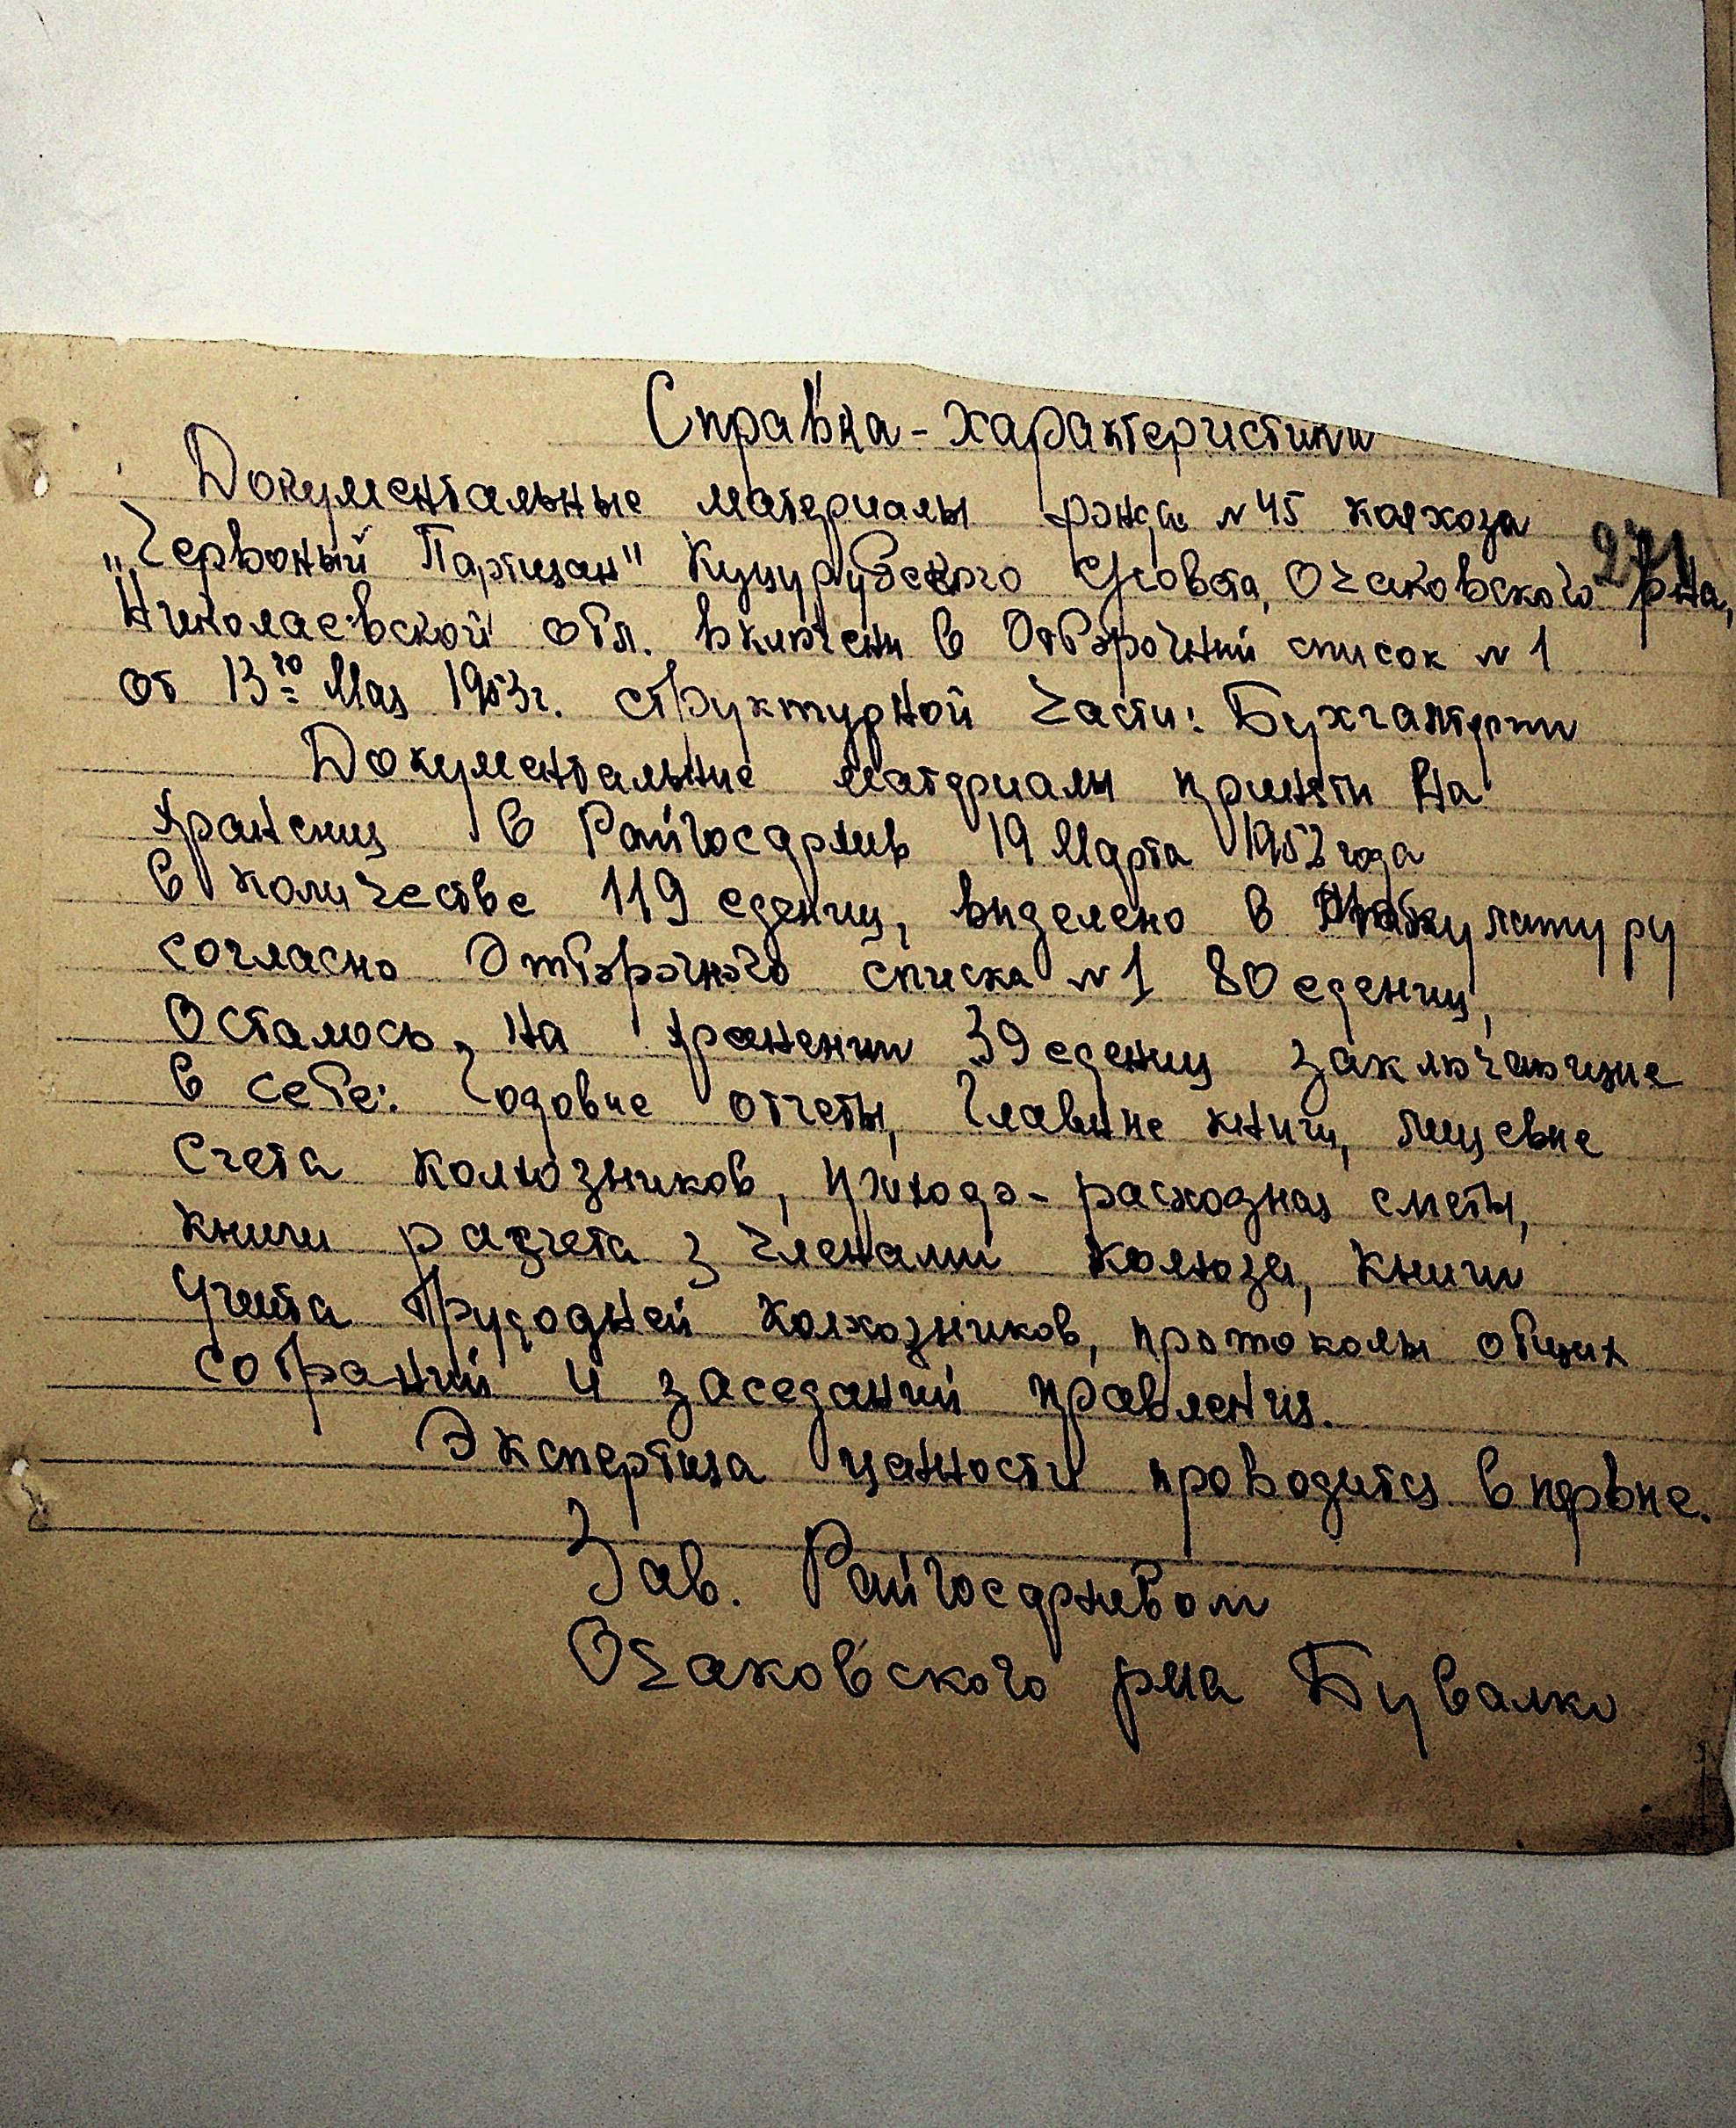 Справка-характеристики
Документальные материалы фонда №45 колхоза
„Червоный Партизан" Куцурубского с/совета, Очаковского р-на,
271
Николаевской обл. включени в Отборочний список №1
от 13го Мая 1953г. структурной части: Бухгалтерии
Документальние материалы приняти на
хранения в Райгосархив 19 Марта года
в количестве 119 едениц, виделено в макулатуру
согласно Отборочного списка №1 80 едениц,
Осталось на хранении 39 едениц заключающие
в себе: Годовие отчеты, Главные книги, лицевие
счета колхозников, приходо-расходная сметы,
книги расчета з членами колхоза, книги
учета трудодней колхозников, протоколы общих
собраний и заседаний правления.
Экспертиза ценности проводится впервие.
Зав. Райгосархивом
Очаковского рна Бувалко